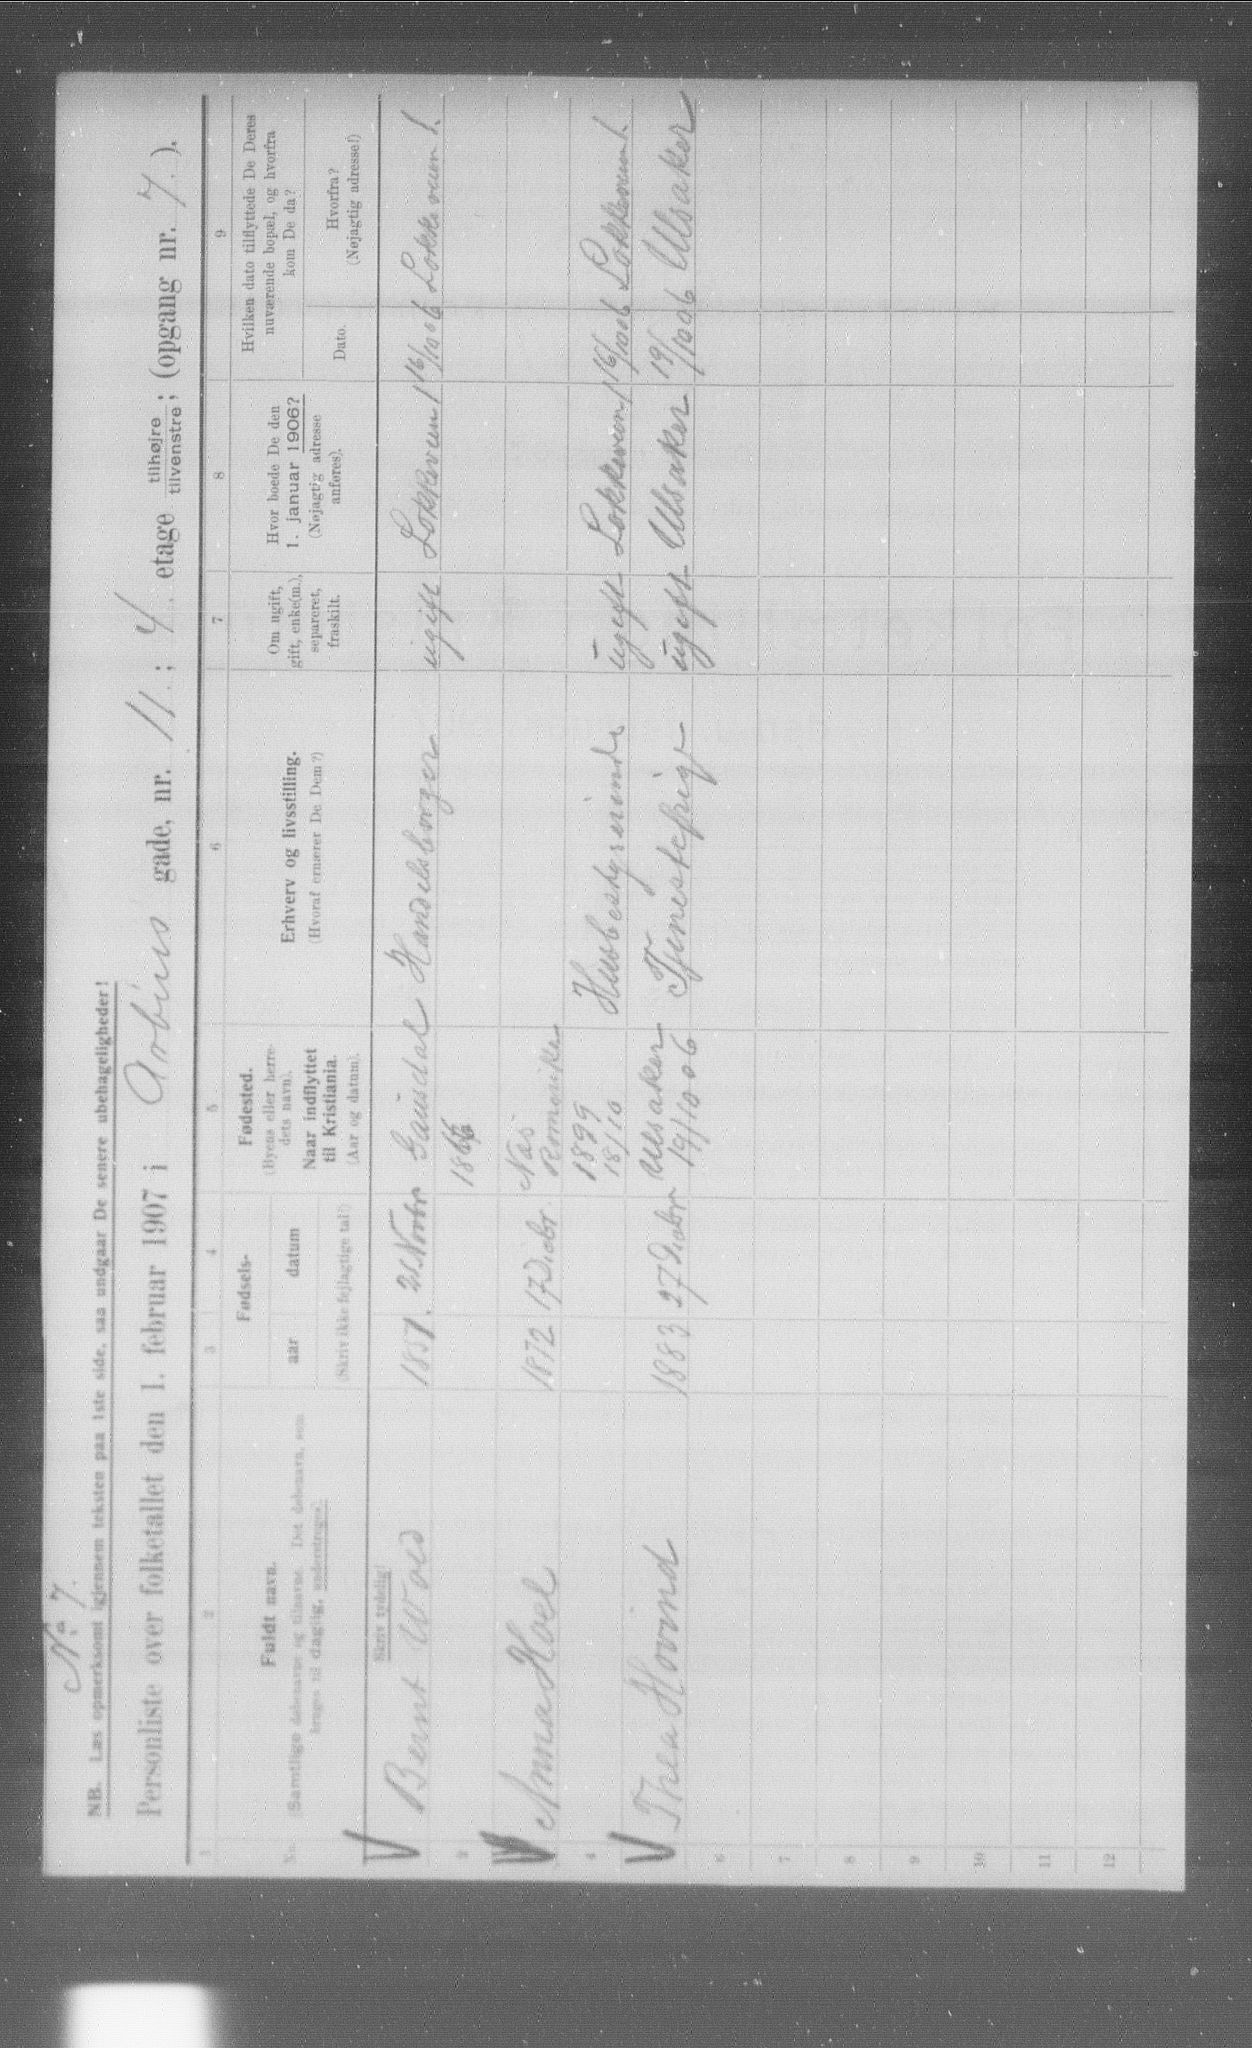 No 7.
NB. Læs opmerksomt igjennem teksten paa 1ste side, saa undgaar De senere ubehageligheder!
Personliste over folketallet den 1. februar 1907 i Arbins gade, nr. 11.; 4 etage tilhøjre tilvenstre; (opgang nr. 7.).
1 2 3 4 5 6 7 8 9
No. Fuldt navn.
(Samtlige døbenavne og tilnavne. Det døbenavn, som
bruges til daglig, understreges.)
Skriv tydelig!
Fødsels-
aar datum
(Skriv ikke fejlagtige tal!)
Fødested.
(Byens eller herre-
dets navn).
Naar indflyttet
til Kristiania.
(Aar og datum).
Erhverv og livsstilling.
(Hvoraf ernærer De Dem?)
Om ugift,
gift, enke(m.),
separeret,
fraskilt.
Hvor boede De den
1. januar 1906?
(Nøjagtig adresse
anføres).
Hvilken dato tilflyttede De Deres
nuværende bopæl, og hvorfra
kom De da?
Dato.
Hvorfra?
(Nøjagtig adresse!)
Bernt Wold 1851. 21 Novbr Gausdal Handelsborger ugift Løkkeveien 1 16/10 06 Løkkeveien 1.
2
Anna Hoel 1872 17 Decbr. Næs
Romerike
4 1899
18/10 Husbestyrerinde ugift Løkkeveien 1 16/10 06 Løkkeveien 1.
Thea Hovind 1883 27 Decbr Ullsaker
19/10 06 Tjenestepige ugift Ullsaker 19/10 06 Ullsaker
6
7
8
9
10
11
12